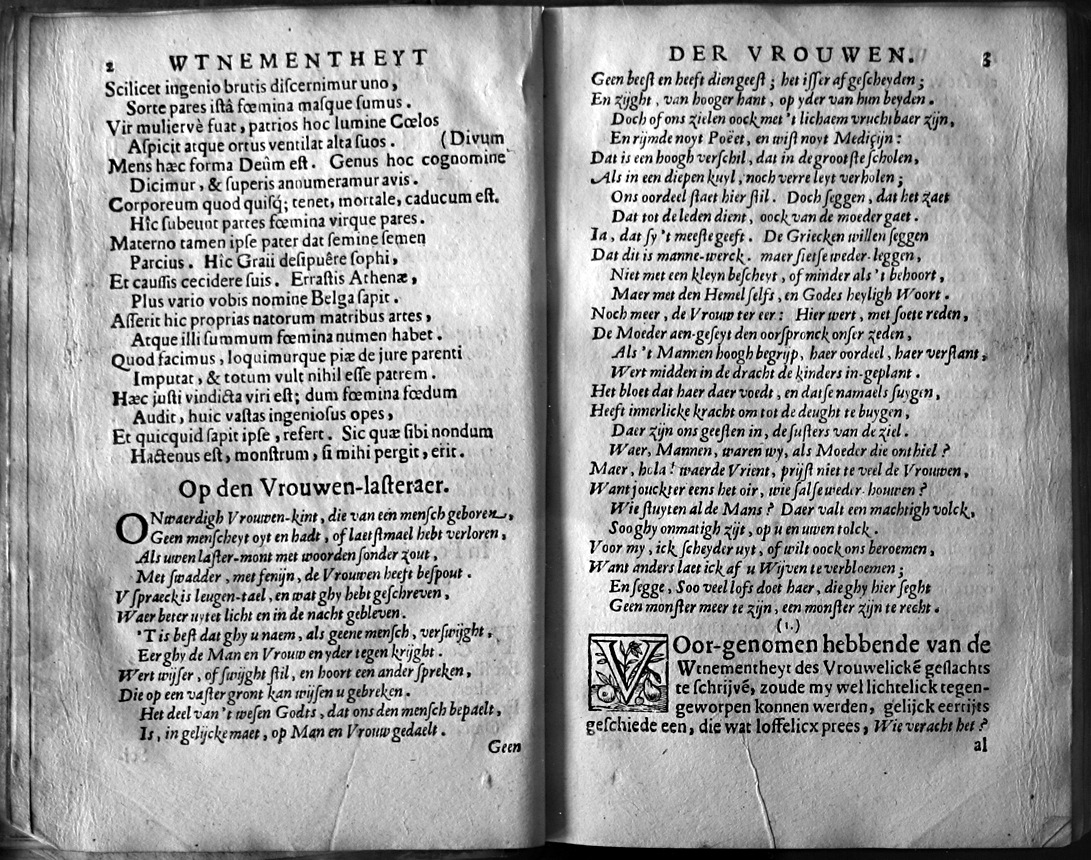 2 WTNEMENTHEYT
Scilicet ingenio brutis diſcernimur uno,
Sorte pares iſtâ fœmina maſque ſumus.
Vir muliervè fuat, patrios hoc lumine Cœlos
Aſpicit atque ortus ventilat alta ſuos. (Divum
Mens hæc forma Deûm eſt. Genus hoc cognomine
Dicimur, & ſuperis annumeramur avis.
Corporeum quod quiſq; tenet, mortale, caducum eſt.
Hîc ſubeunt partes fœmina virque pares.
Materno tamen ipſe pater dat ſemine ſemen
Parcius. Hîc Graii deſipuêre ſophi,
Et cauſſis cecidere ſuis. Erraſtis Athenæ,
Plus vario vobis nomine Belga ſapit.
Aſſerit hic proprias natorum matribus artes,
Atque illi ſummum fœmina numen habet.
Quod facimus, loquimurque piæ de jure parenti
Imputat, & totum vult nihil eſſe patrem.
Hæc juſti vindicta viri eſt; dum fœmina fœdum
Audit, huic vaſtas ingenioſus opes,
Et quicquid ſapit ipſe, refert. Sic quæ ſibi nondum
Hactenus eſt, monſtrum, ſi mihi pergit, erit.
Op den Vrouwen-laſteraer.
ONwaerdigh Vrouwen-kint, die van een menſch geboren,
Geen menſcheyt oyt en hadt, of laetſtmael hebt verloren,
Als uwen laſter-mont met woorden ſonder zout,
Met ſwadder, met fenijn, de Vrouwen heeft beſpout.
V ſpraeck is leugen-tael, en wat ghy hebt geſchreven,
Waer beter uytet licht en in de nacht gebleven.
'T is beſt dat ghy u naem, als geene menſch, verſwijght,
Eer ghy de Man en Vrouw en yder tegen krijght.
Wert wijſer, of ſwijght ſtil, en hoort een ander ſpreken,
Die op een vaſter gront kan wijſen u gebreken.
Het deel van't weſen Godts, dat ons den menſch bepaelt,
Is, in gelijcke maet, op Man en Vrouw gedaelt.
Geen
DER VROUWEN. 3
Geen beeſt en heeft dien geeſt; het iſſer af geſcheyden;
En zijght, van hooger hant, op yder van hun beyden.
Doch of ons zielen oock met 't lichaem vruchtbaer zijn,
En rijmde noyt Poëet, en wiſt noyt Mediçijn:
Dat is een hoogh verſchil, dat in de grootſte ſcholen,
Als in een diepen kuyl, noch verre leyt verholen;
Ons oordeel ſtaet hier ſtil. Doch ſeggen, dat het zaet
Dat tot de leden dient, oock van de moeder gaet.
Ia, dat ſy 't meeſte geeft. De Griecken willen ſeggen
Dat dit is manne-werck. maer ſietſe weder-leggen,
Niet met een kleyn beſcheyt, of minder als 't behoort,
Maer met den Hemel ſelfs, en Godes heyligh Woort.
Noch meer, de Vrouw ter eer: Hier wert, met ſoete reden,
De Moeder aen-geſeyt den oorſpronck onſer zeden,
Als 't Mannen hoogh begrijp, haer oordeel, haer verſtant,
Wert midden in de dracht de kinders in-geplant.
Het bloet dat haer daer voedt, en datſe namaels ſuygen,
Heeft innerlicke kracht om tot de deught te buygen,
Daer zijn ons geeſten in, de ſuſters van de ziel.
Waer, Mannen, waren wy, als Moeder die onthiel?
Maer, hola! waerde Vrient, prijſt niet te veel de Vrouwen,
Want jouckter eens het oir, wie ſalſe weder-houwen?
Wie ſluyten al de Mans? Daer valt een machtigh volck,
Soo ghy onmatigh zijt, op u en uwen tolck.
Voor my, ick ſcheyder uyt, of wilt oock ons beroemen,
Want anders laet ick af u Wijven te verbloemen;
En ſegge, Soo veel lofs doet haer, die ghy hier ſeght
Geen monſter meer te zijn, een monſter zijn te recht.
(1.)
VOor-genomen hebbende van de
Wtnementheyt des Vrouwelickē geſlachts
te ſchrijvē, zoude my wel lichtelick tegen-
geworpen konnen werden, gelijck eertijts
geſchiede een, die wat loffelicx prees, Wie veracht het?
al